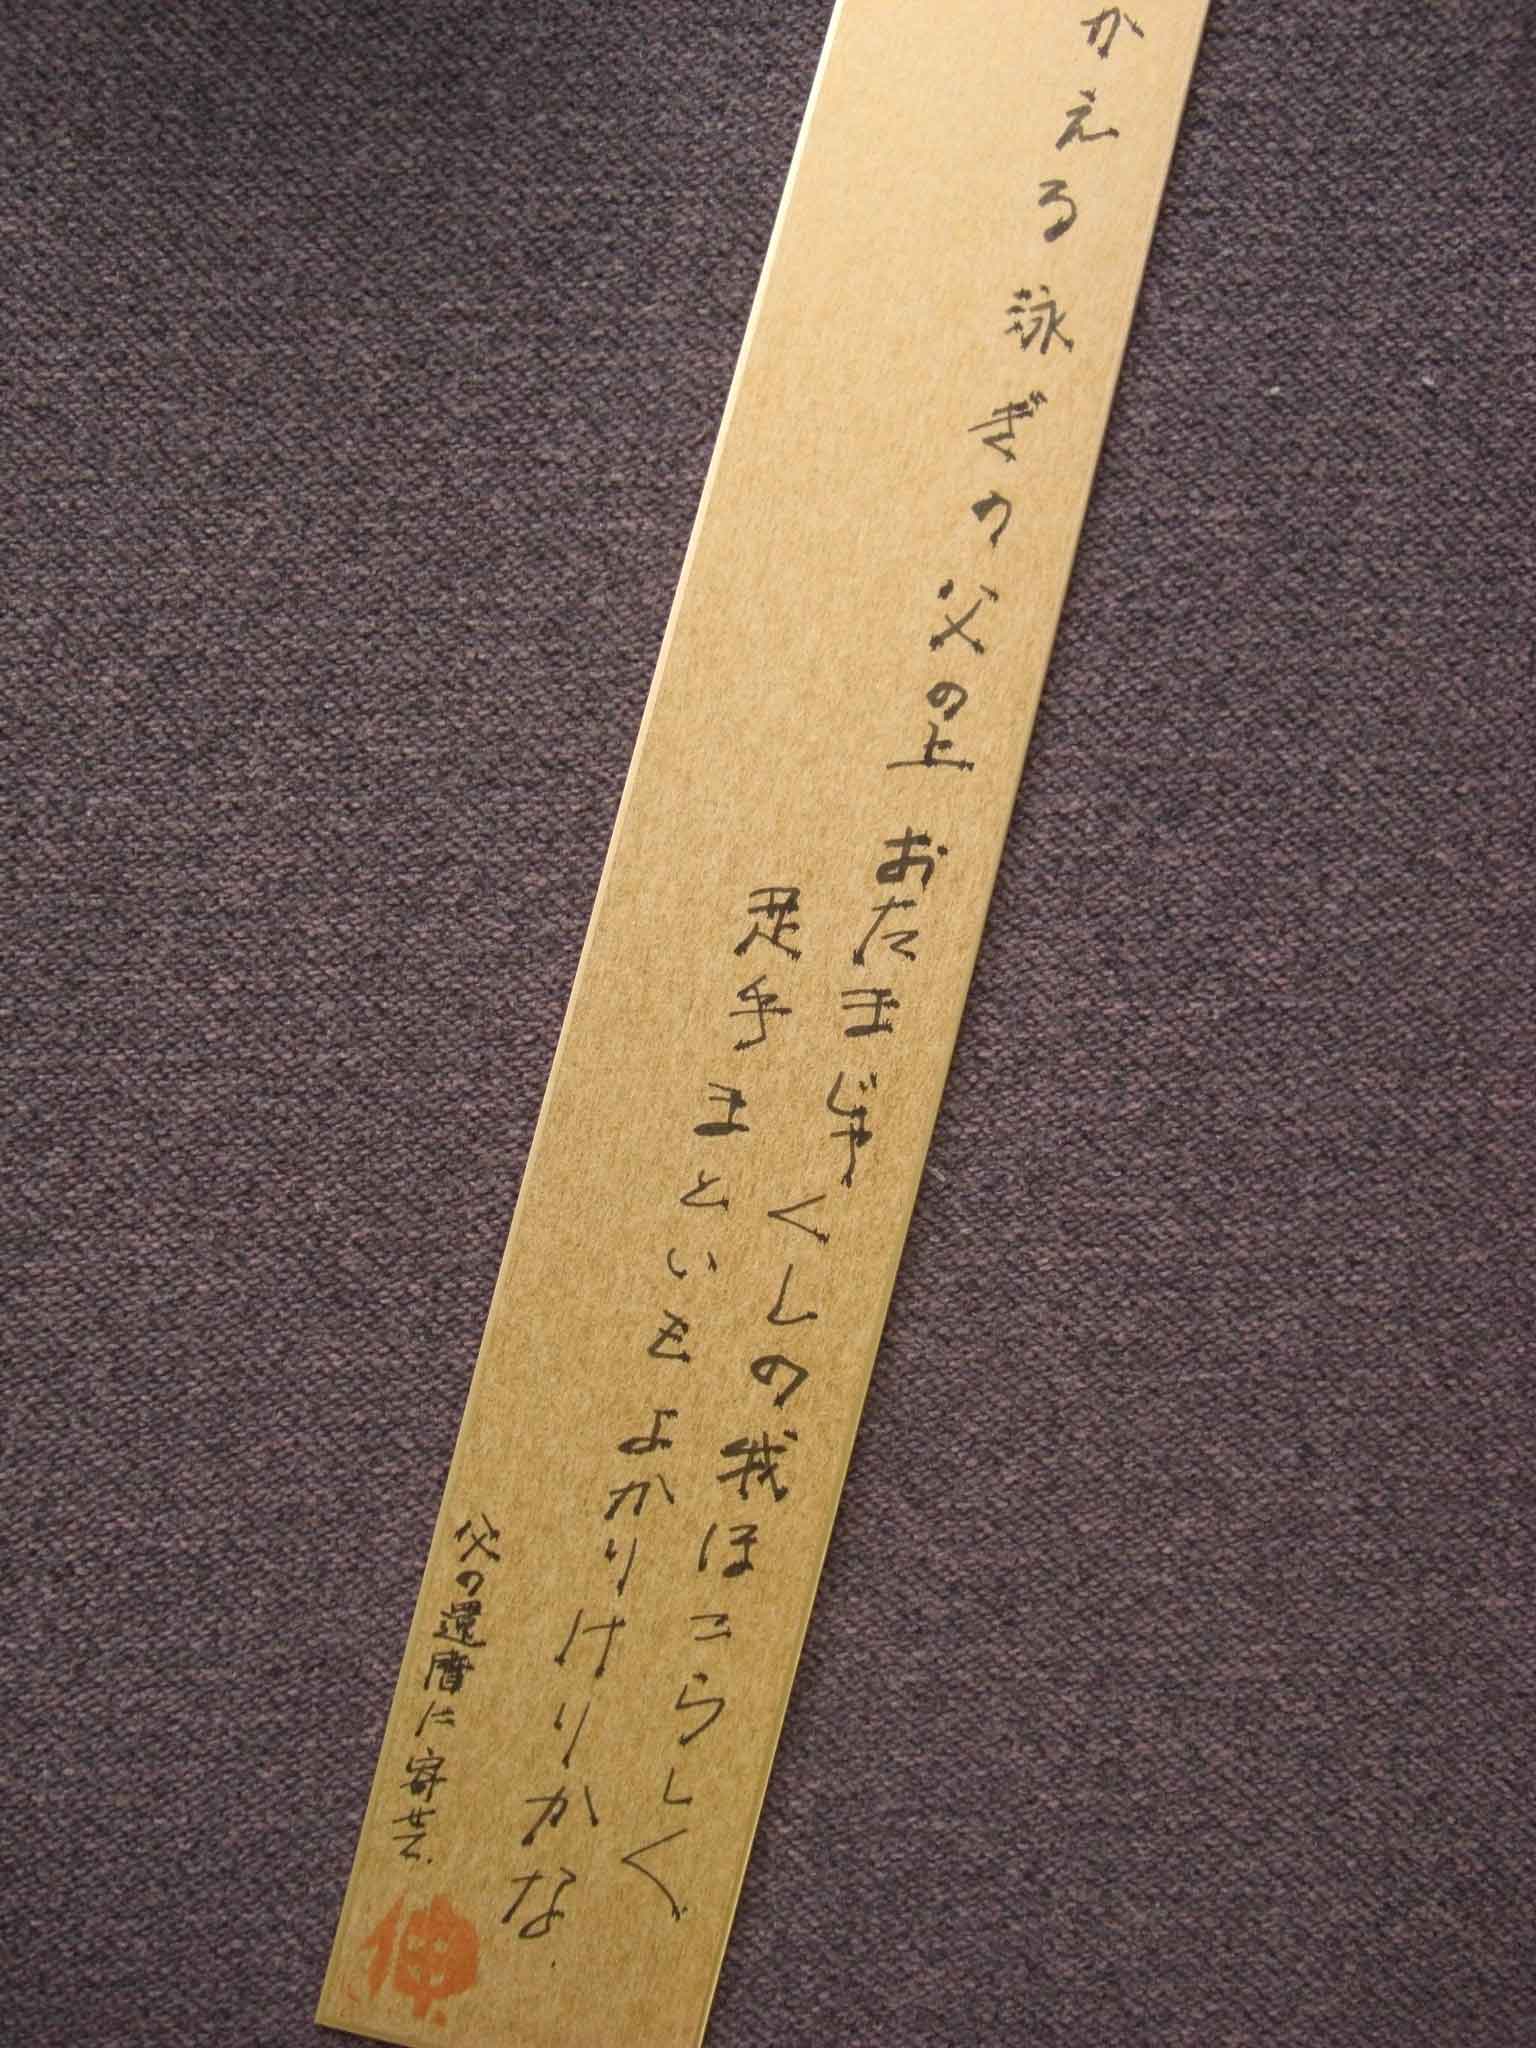 かえる泳ぎの父の上 おたまじゃくしの我ほこらしく
足手まといもよかりけりかな
父の還暦に寄せて.
伸